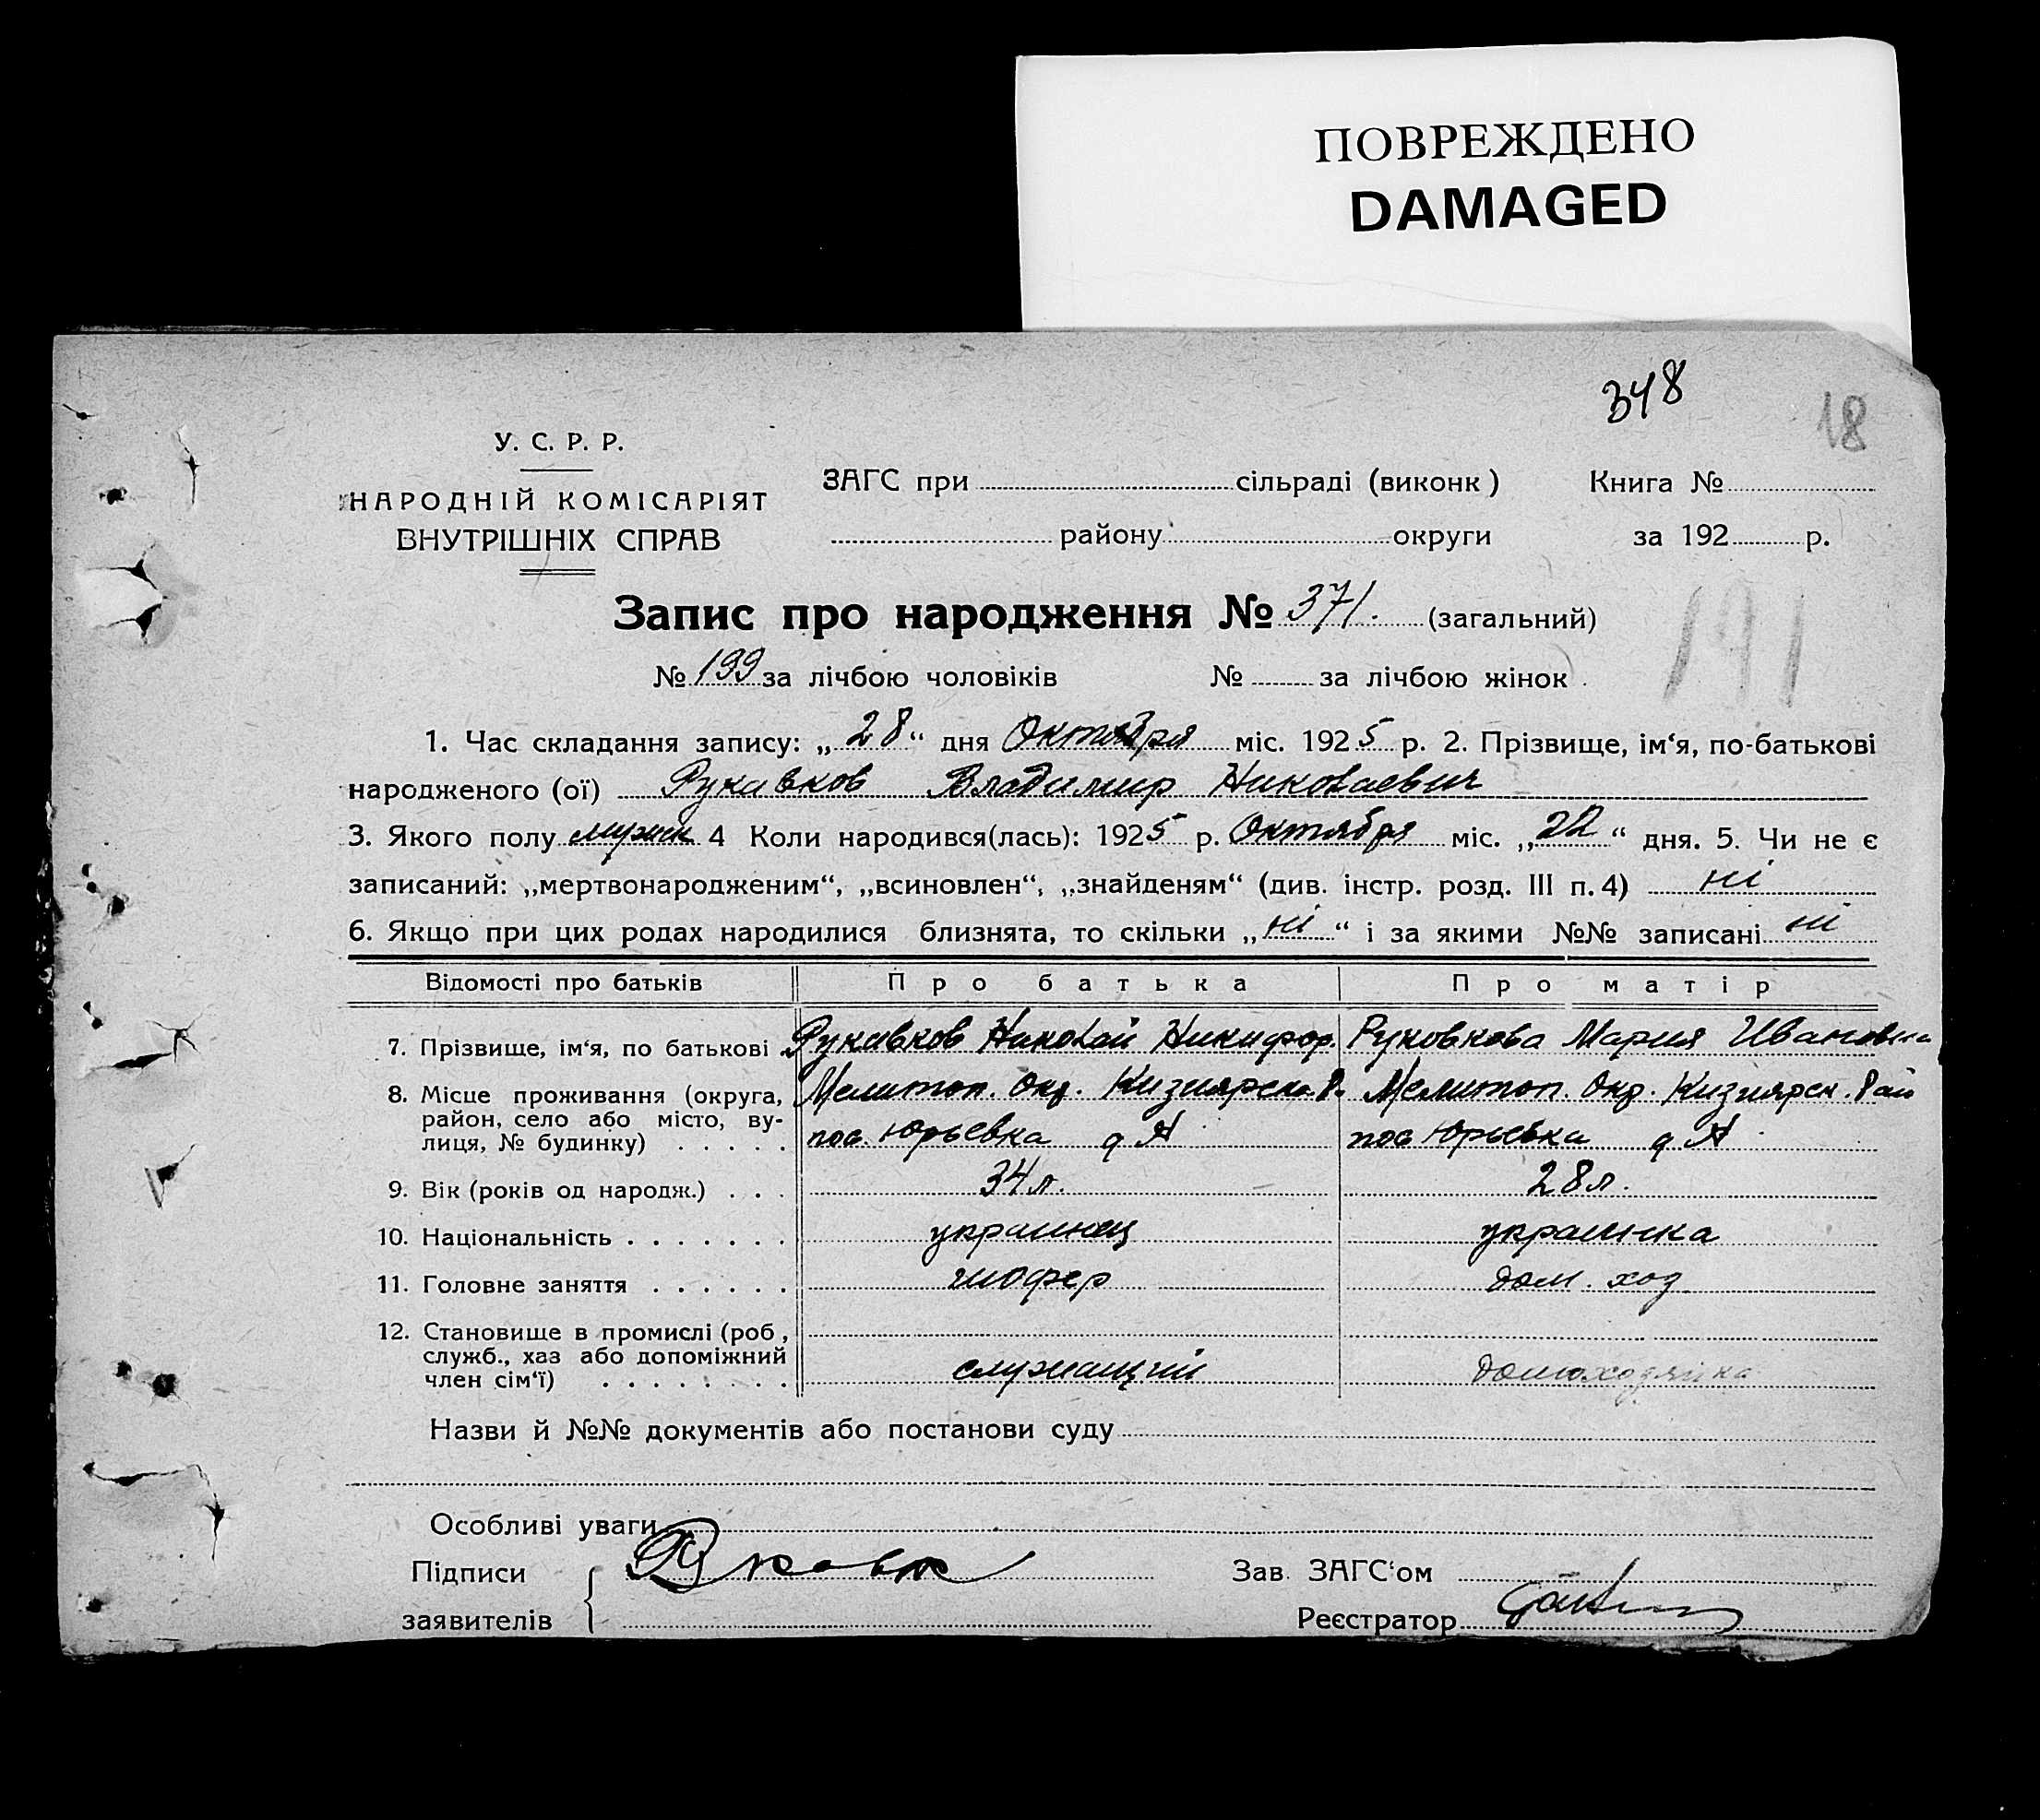 ПОВРЕЖДЕНО
DAMAGED
348
18
У. С. Р. Р.
НАРОДНІЙ КОМІСАРІЯТ
ВНУТРІШНІХ СПРАВ
ЗАГС при сільраді (виконк)
Книга №
району округи
за 192 р.
Запис про народження № 371. (загальний)
191
№ 199 за лічбою чоловіків № за лічбою жінок
1. Час складання запису: „28“ дня Октября міс. 1925 р. 2. Прізвище, ім‘я, по-батькові
народженого (ої) Рукавков Владимир Николаевич
3. Якого полу мужск 4 Коли народився(лась): 1925 р. Октября міс. „22“ дня. 5. Чи не є
записаний: „мертвонародженим“, „всиновлен“, „знайденям“ (див. інстр. розд. III п. 4) ні
6. Якщо при цих родах народилися близнята, то скільки „ні“ і за якими №№ записані ні
Відомості про батьків Про батька Про матір
7. Прізвище, ім‘я, по батькові Рукавков Николай Никифор. Руковкова Мария Ивановна
8. Місце проживання (округа, Мелитоп. Окр. Кизиярск. Р. Мелитоп. Окр. Кизиярск. Рай
район, село або місто, ву-
лиця, № будинку) пос. Юрьевка пос Юрьевка
9. Вік (років од народж.) 34 л. 28 л.
10. Національність украинец украинка
11. Головне заняття шофер дом. хоз
12. Становище в промислі (роб,
служб., хаз або допоміжний служащий домохозяйка
член сім‘ї)
Назви й №№ документів або постанови суду
Особливі уваги
Підписи
заявителів
Зав. ЗАГС‘ом
Реєстратор